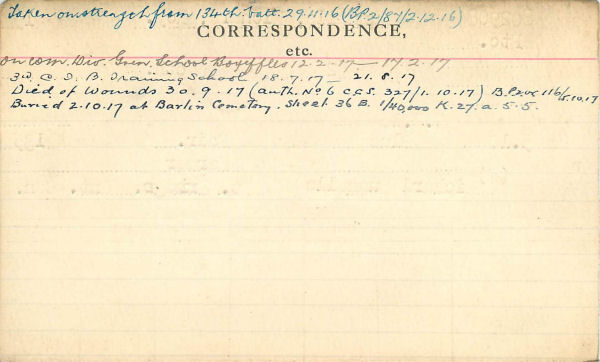 Taken on strength from 134th batt. 29.11.16 (BP2/87/2.12.16)
CORRESPONDENCE,
etc.
on com. Div. Gren. School Boyeffles 12-2-17 — 17.2.17
3rd C. D. B. Training School 18.7.17 — 21.8.17
Died of Wounds 30.9.17 (auth. No 6 C.C.S. 327/1.10.17) 116/5.10.17
Buried 2.10.17 at Barlin Cemetery. Sheet 36 B. 1/40,000 K.27.a.5.5.